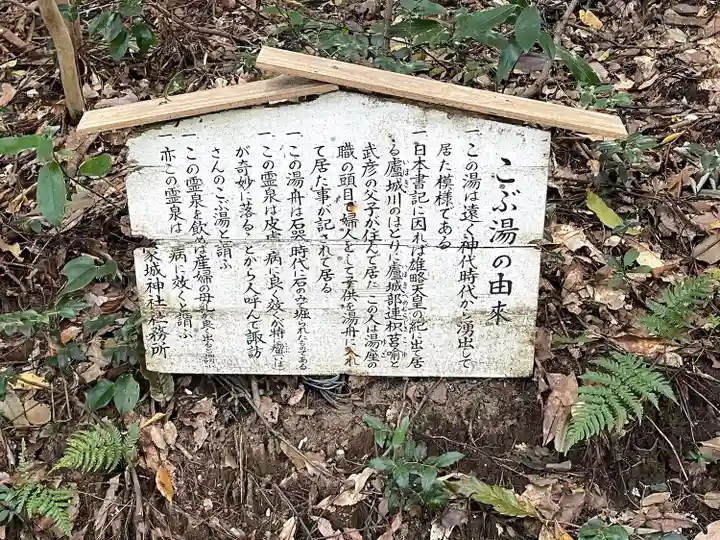 こぶ湯の由來
一 この湯は遠く神代時代から湧出して
居た模様である
一 日本書記に因れば雄略天皇の紀に出て居
る廬城川のほとりに廬城部連枳莒喩と
武彦の父子が住んで居たこの人は湯座の
職の頭目で婦人をして子供を湯舟に入れ
て居た事が記されて居る
一 この湯舟は石器時代に石のみで堀られたものである
一 この霊泉は皮膚病に良く效くが特に瘤は
が奇妙に落ることから人呼んで諏訪
さんのこぶ湯と謂ふ
一 この霊泉を飲めば産婦の母乳が良く出ると謂ふ
一 亦この霊泉は 病に效くと謂ふ
家城神社社務所